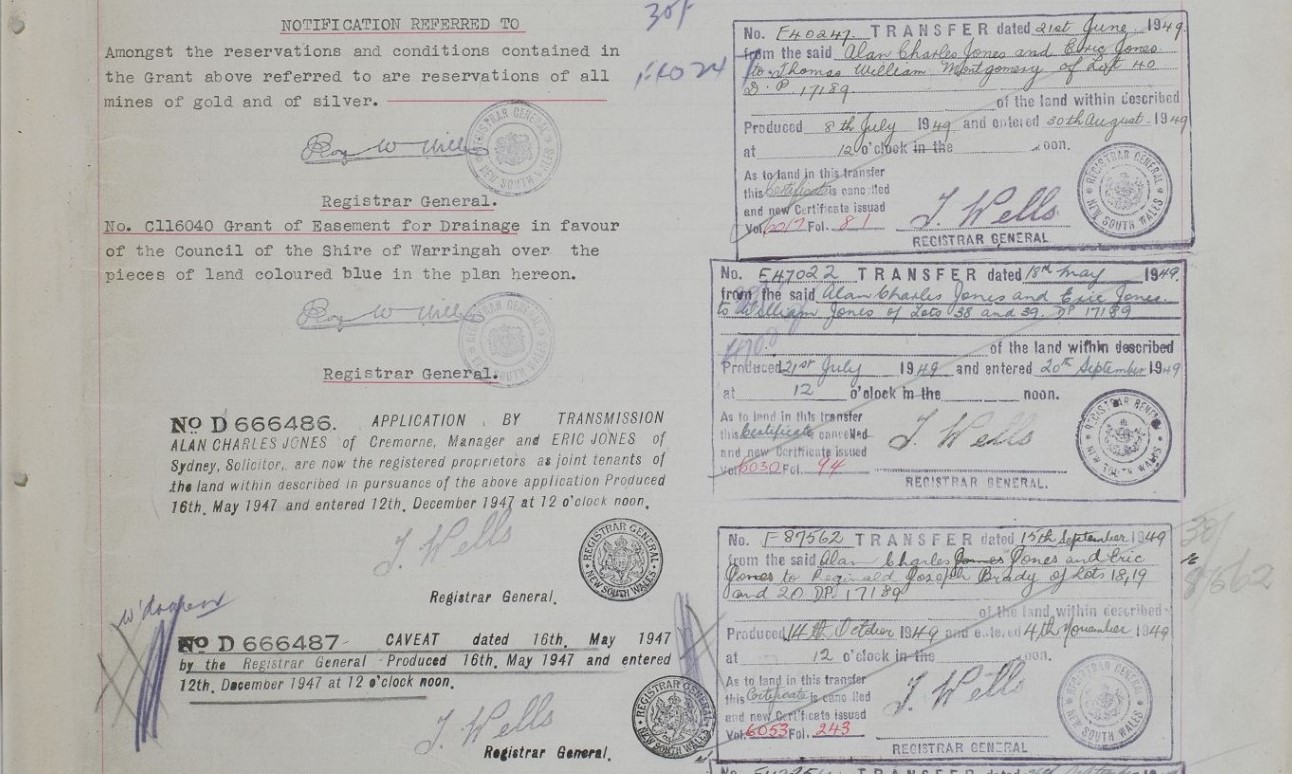 NOTIFICATION REFERRED TO
Amongst the reservations and conditions contained in
the Grant above referred to are reservations of all
mines of gold and of silver.
REGISTRAR GENERAL
NEW SOUTH WALES
Registrar General.
No. C116040 Grant of Easement for Drainage in favour
of the Council of the Shire of Warringah over the
pieces of land coloured blue in the plan hereon.
Registrar General.
No D 666486. APPLICATION BY TRANSMISSION
ALAN CHARLES JONES of Cremorne, Manager and ERIC JONES of
Sydney, Solicitor, are now the registered proprietors as joint tenants of
the land within described in pursuance of the above application Produced
16th, May 1947 and entered 12th, December 1947 at 12 o'clock noon.
J. Wells
REGISTRAR GENERAL
NEW SOUTH WALES
Registrar General.
w'drawn
No D 666487 CAVEAT dated 16th, May 1947
by the Registrar General Produced 16th, May 1947 and entered
12th, December 1947 at 12 o'clock noon.
J. Wells
REGISTRAR GENERAL
NEW SOUTH WALES
Registrar General.
No. F40247 TRANSFER dated 21st June 1949
from the said Alan Charles Jones and Eric Jones
to Thomas William Montgomery of Lot 40
D.P. 17189
of the land within described
Produced 8th July 1949 and entered 30th August 1949
at 12 o'clock in the noon.
As to land in this transfer
this Certificate is cancelled
and new Certificate issued
Vol. 6017 Fol. 81
J. Wells
REGISTRAR GENERAL
REGISTRAR GENERAL
NEW SOUTH WALES
No. F47022 TRANSFER dated 18th May 1949.
from the said Alan Charles Jones and Eric Jones
to William Jones of Lots 38 and 39. DP 17189
of the land within described
Produced 21st July 1949 and entered 20th September 1949
at 12 o'clock in the noon.
As to land in this transfer
this Certificate cancelled
and new Certificate issued
Vol. 6030 Fol. 94
J. Wells
REGISTRAR GENERAL.
REGISTRAR GENERAL
NEW SOUTH WALES
No. F87562 TRANSFER dated 15th September 1949
from the said Alan Charles James Jones and Eric
Jones to Reginald Joseph Brady of Lots 18, 19
and 20 DP. 17189
of the land within described
Produced 14th October 1949 and entered 4th November 1949
at 12 o'clock in the noon.
As to land in this transfer
this Certificate is cancelled
and new Certificate issued
Vol. 6053 Fol. 243
J. Wells
REGISTRAR GENERAL